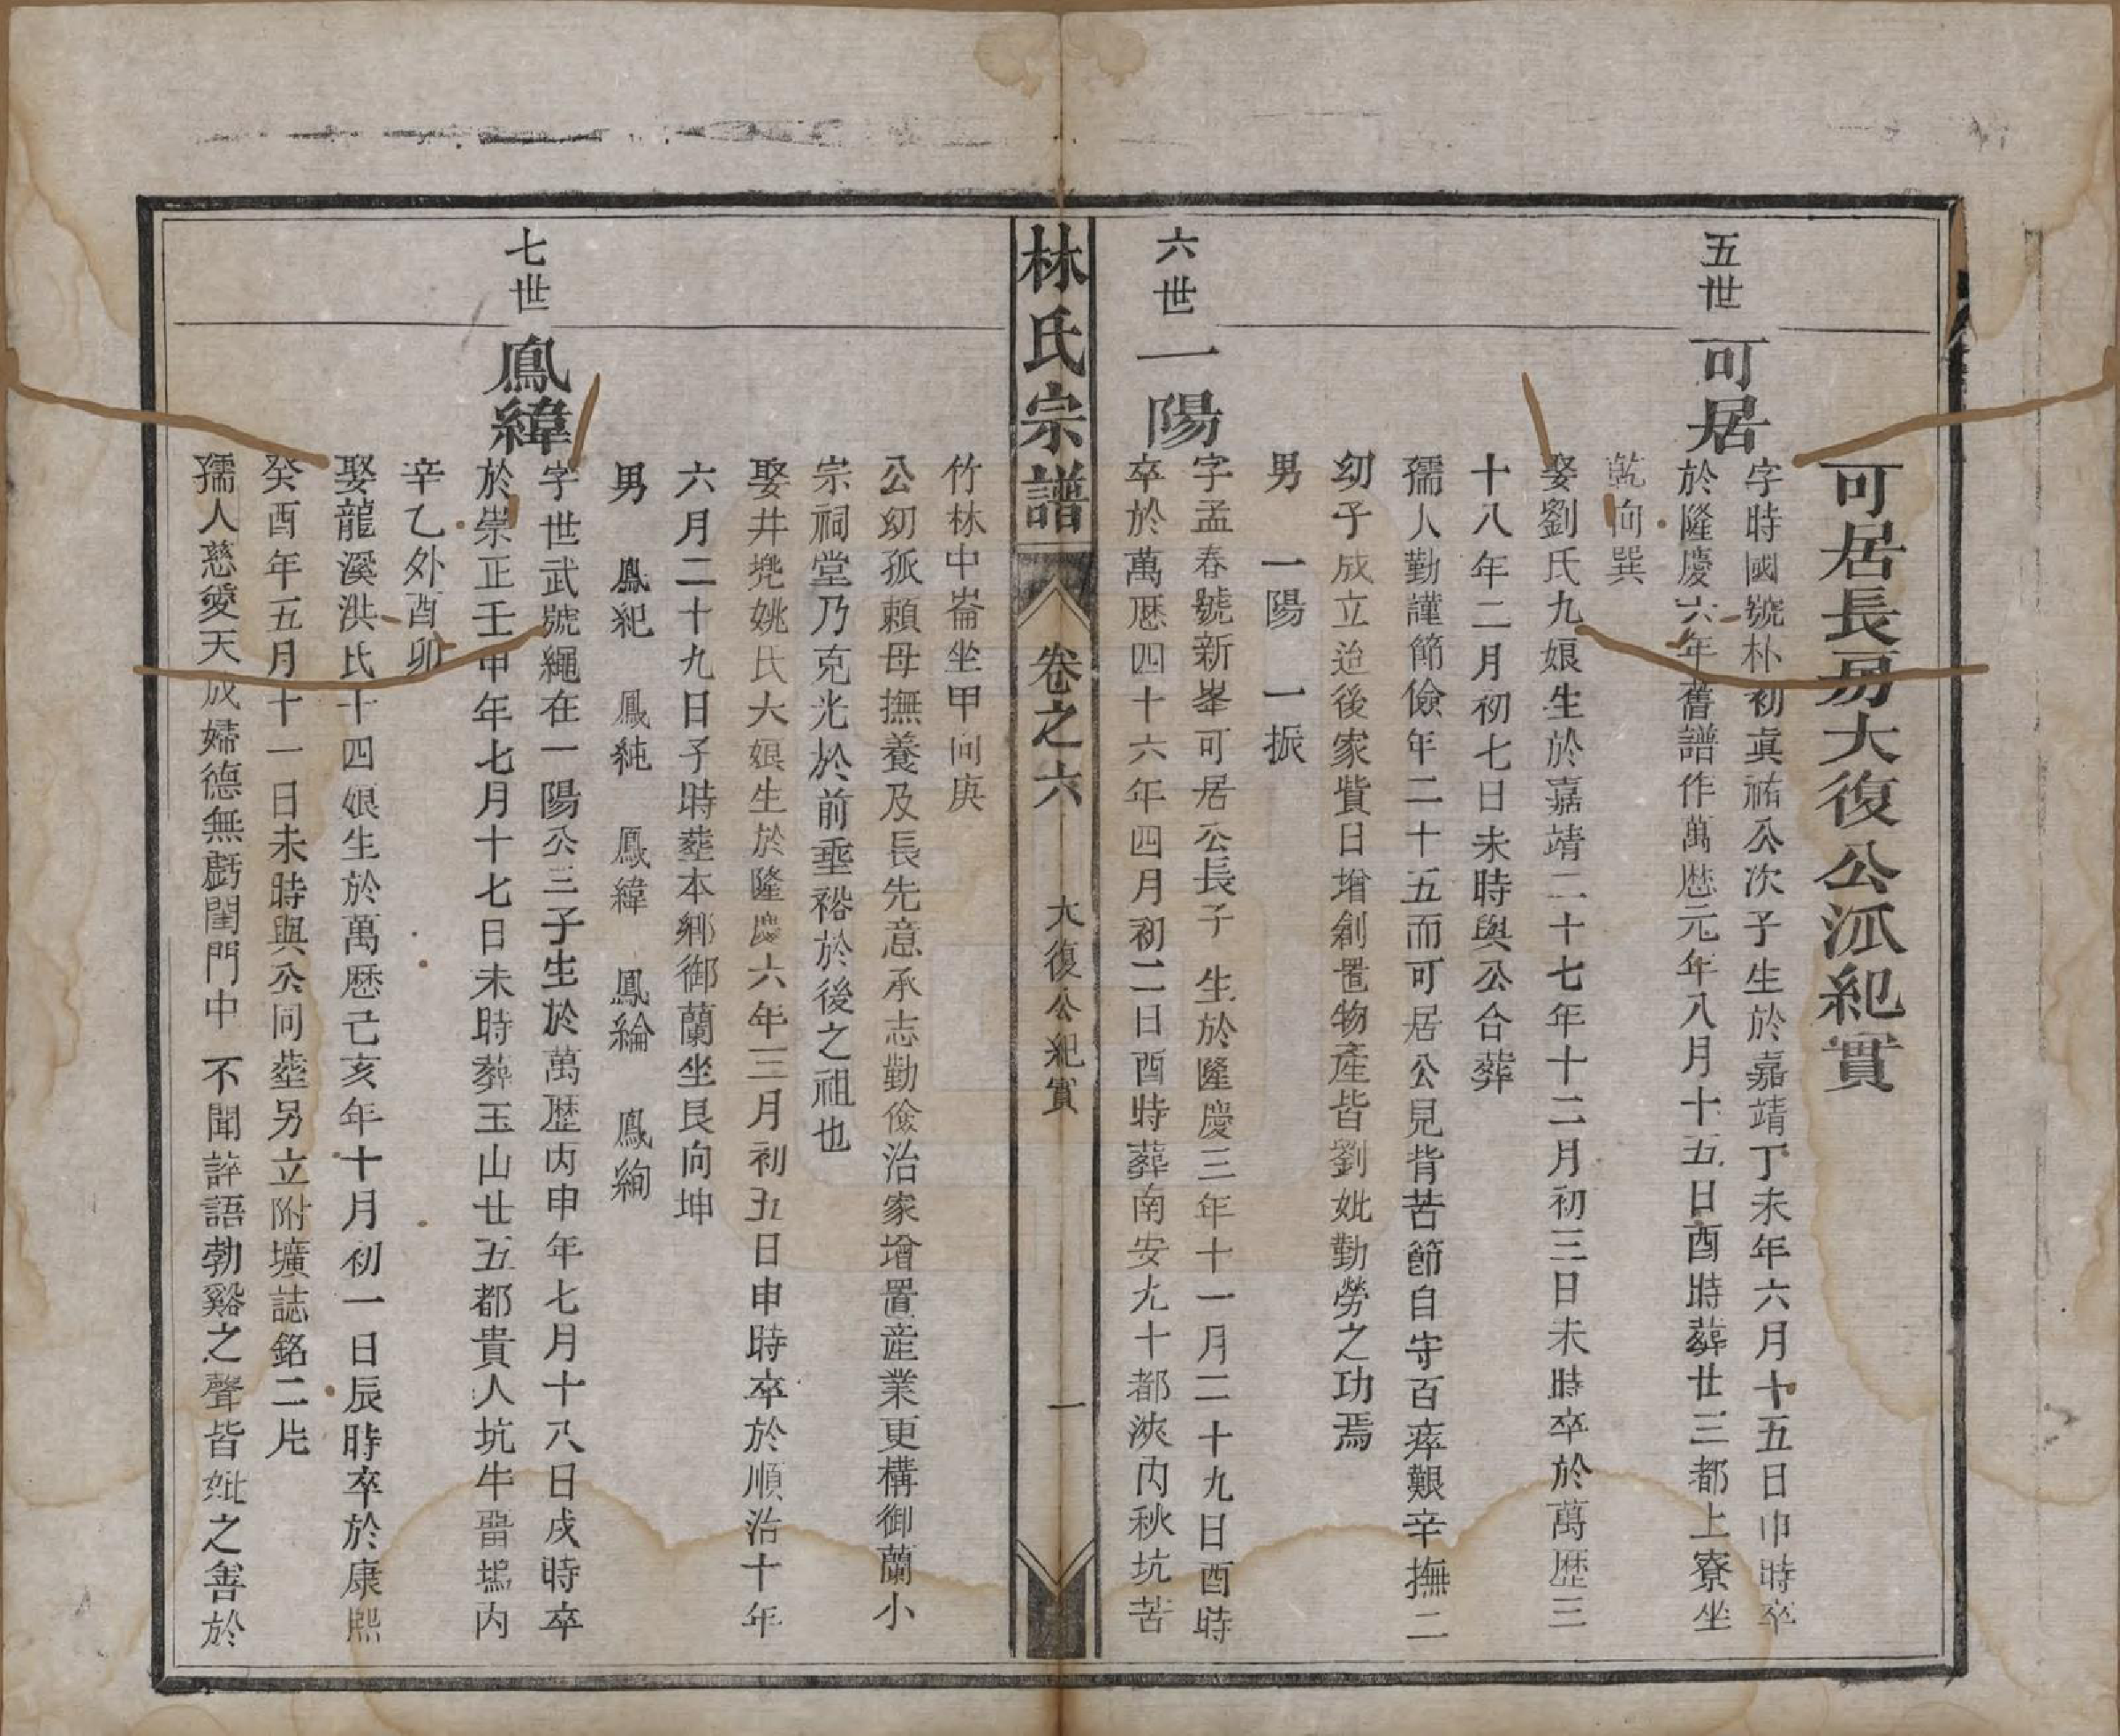 可居長房大復公派紀實
五世
可居
字時國號朴初眞祐公次子生於嘉靖丁未年六月十五日巾時卒
於隆慶六年舊譜作萬歴元年八月十五日酉時葬廿三都上寮坐
乾向巽
娶劉氏九娘生於嘉靖二十七年十二月初三日未時卒於萬歴三
十八年二月初七日未時與公合葬
孺人勤謹節儉年二十五而可居公見背苦節自守百瘁艱辛撫二
幼子成立迨後家貲日增創置物產皆劉妣勤勞之功焉
男 一陽 一振
六世
一陽
字孟春號新峯可居公長子 生於隆慶三年十一月二十九日酉時
卒於萬歴四十六年四月初二日酉時葬南安九十都浹内秋坑苦
林氏宗譜
卷之六
大復公紀實
一
竹林中崙坐甲向庚
公幼孤賴母撫養及長先意承志勤儉治家增置産業更構御蘭小
宗祠堂乃克光於前垂裕於後之祖也
娶井垗姚氏大娘生於隆慶六年三月初五日申時卒於順治十年
六月二十九日子時塟本鄉御蘭坐艮向坤
男 鳳紀 鳳純 鳳緯 鳳綸 鳳絢
七世
鳳緯
字世武號繩在一陽公三子生於萬歴丙申年七月十八日戌時卒
於崇正壬申年七月十七日未時葬玉山廿五都貴人坑牛㽞塢内
辛乙外酉卯
娶龍溪洪氏十四娘生於萬歴己亥年十月初一日辰時卒於康熙
癸酉年五月十一日未時與公同塟另立附壙誌銘二片
孺人慈愛天成婦德無虧閨門中 不聞誶語勃谿之聲皆妣之善於